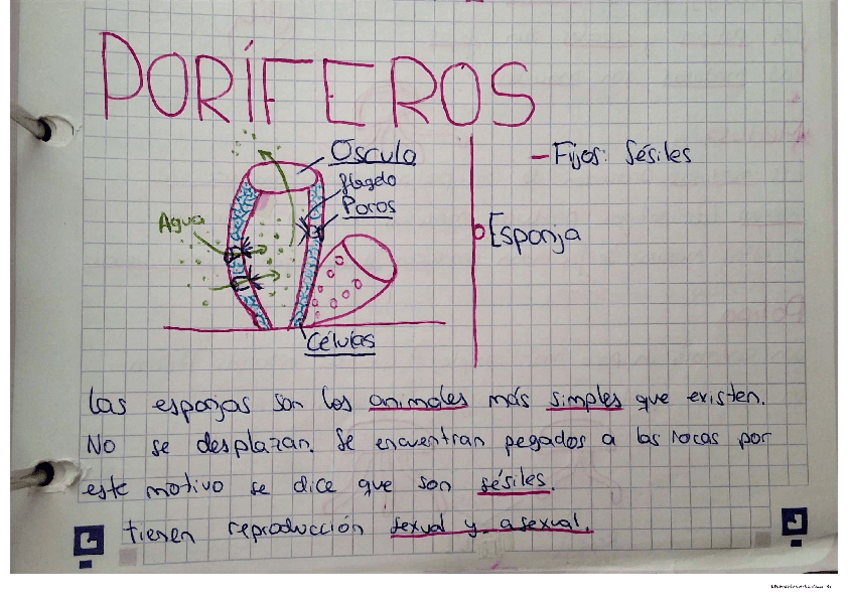 PORÍFEROS
Óscula
flagelo
Poros
Agua
Células
- Fijos: Sésiles
Esponja
Las esponjas son los animales más simples que existen.
No se desplazan. Se encuentran pegados a las rocas por
este motivo se dice que son sésiles.
tienen reproducción sexual y asexual.